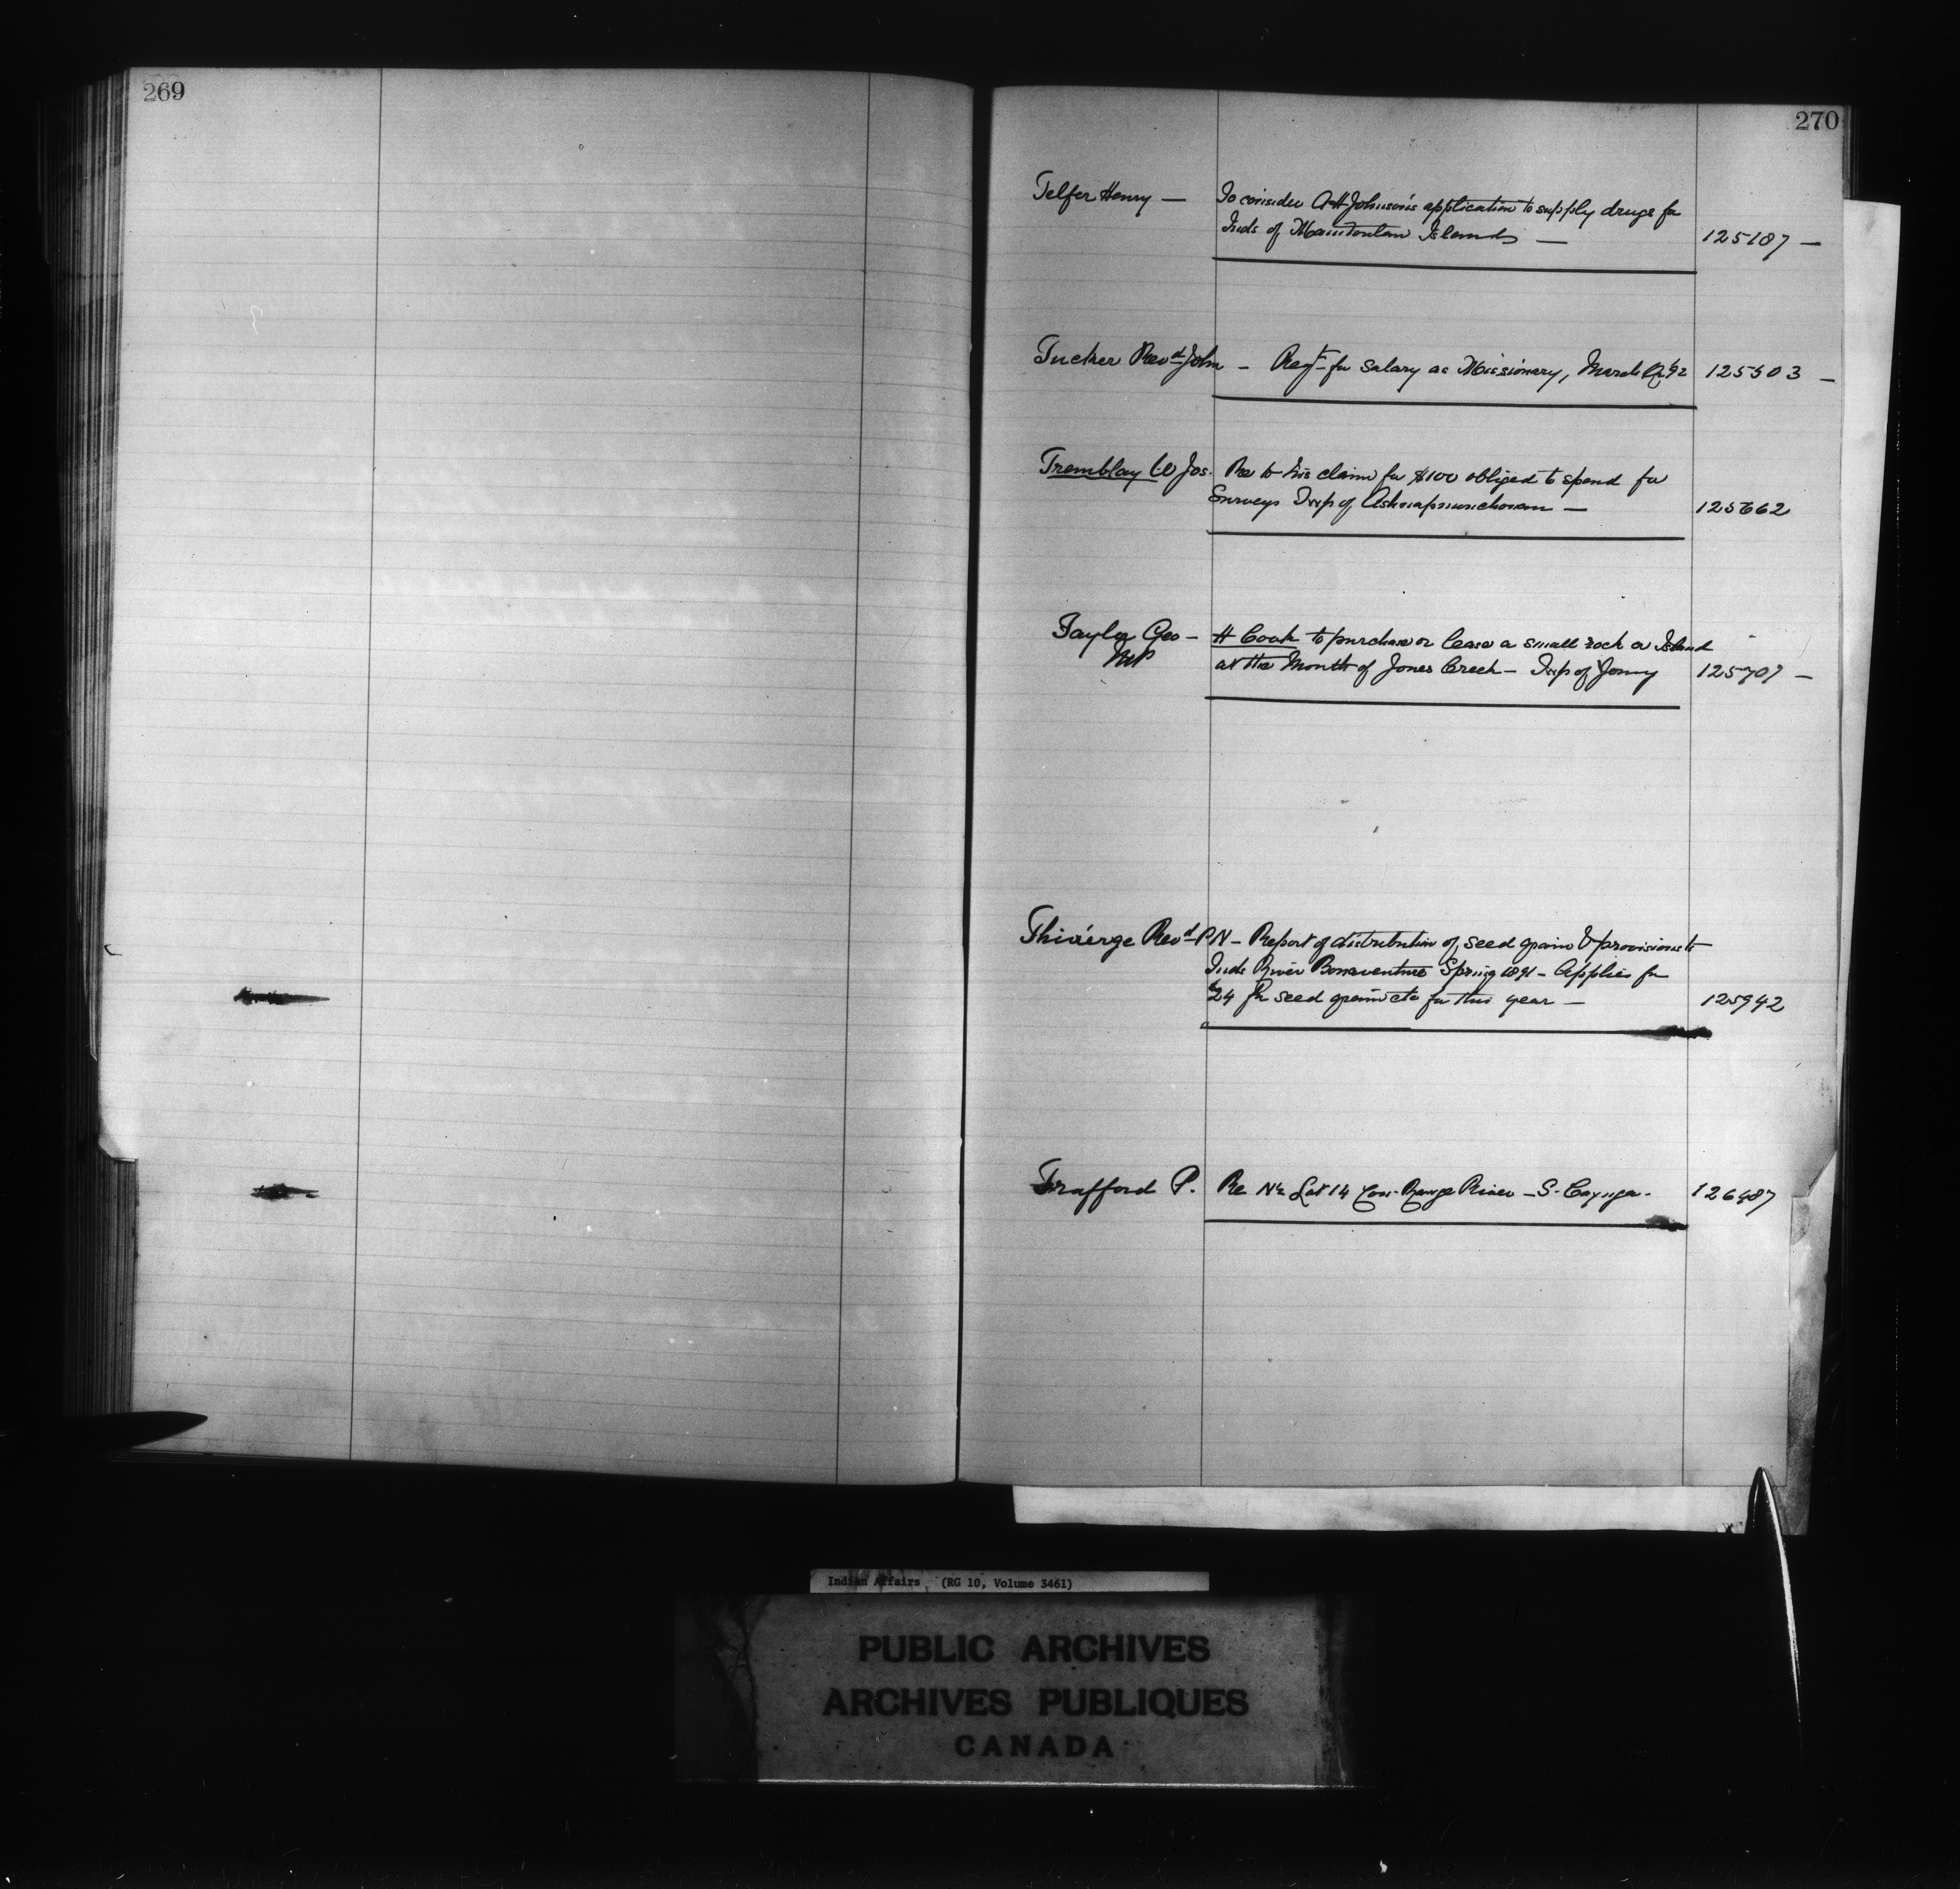 269
270
Telfer Henry — To consider A H Johnson's application to supply drugs for
Inds of Manitoulin Islands — 125187 —
Tucker Revd John — Reqt for salary as Missionary, March Qr 92 125503 —
Tremblay Jos. Re to his claim for $100 obliged to spend for
Surveys Twp of Ashuapmouchouan — 125662
Taylor Geo — H Cook to purchase or lease a small rock or Island
MP at the Mouth of Jones Creek — Twp of Yonge 125707 —
Thivierge Revd P N — Report of distribution of seed grain & provisions to
Inds River Bonaventure Spring 1891 — Applies for
$24 for seed grain etc for this year — 125942
Trafford P. Re N½ Lot 14 Con. Range River — S. Cayuga. 126487
Indian Affairs (RG 10, Volume 3461)
PUBLIC ARCHIVES
ARCHIVES PUBLIQUES
CANADA